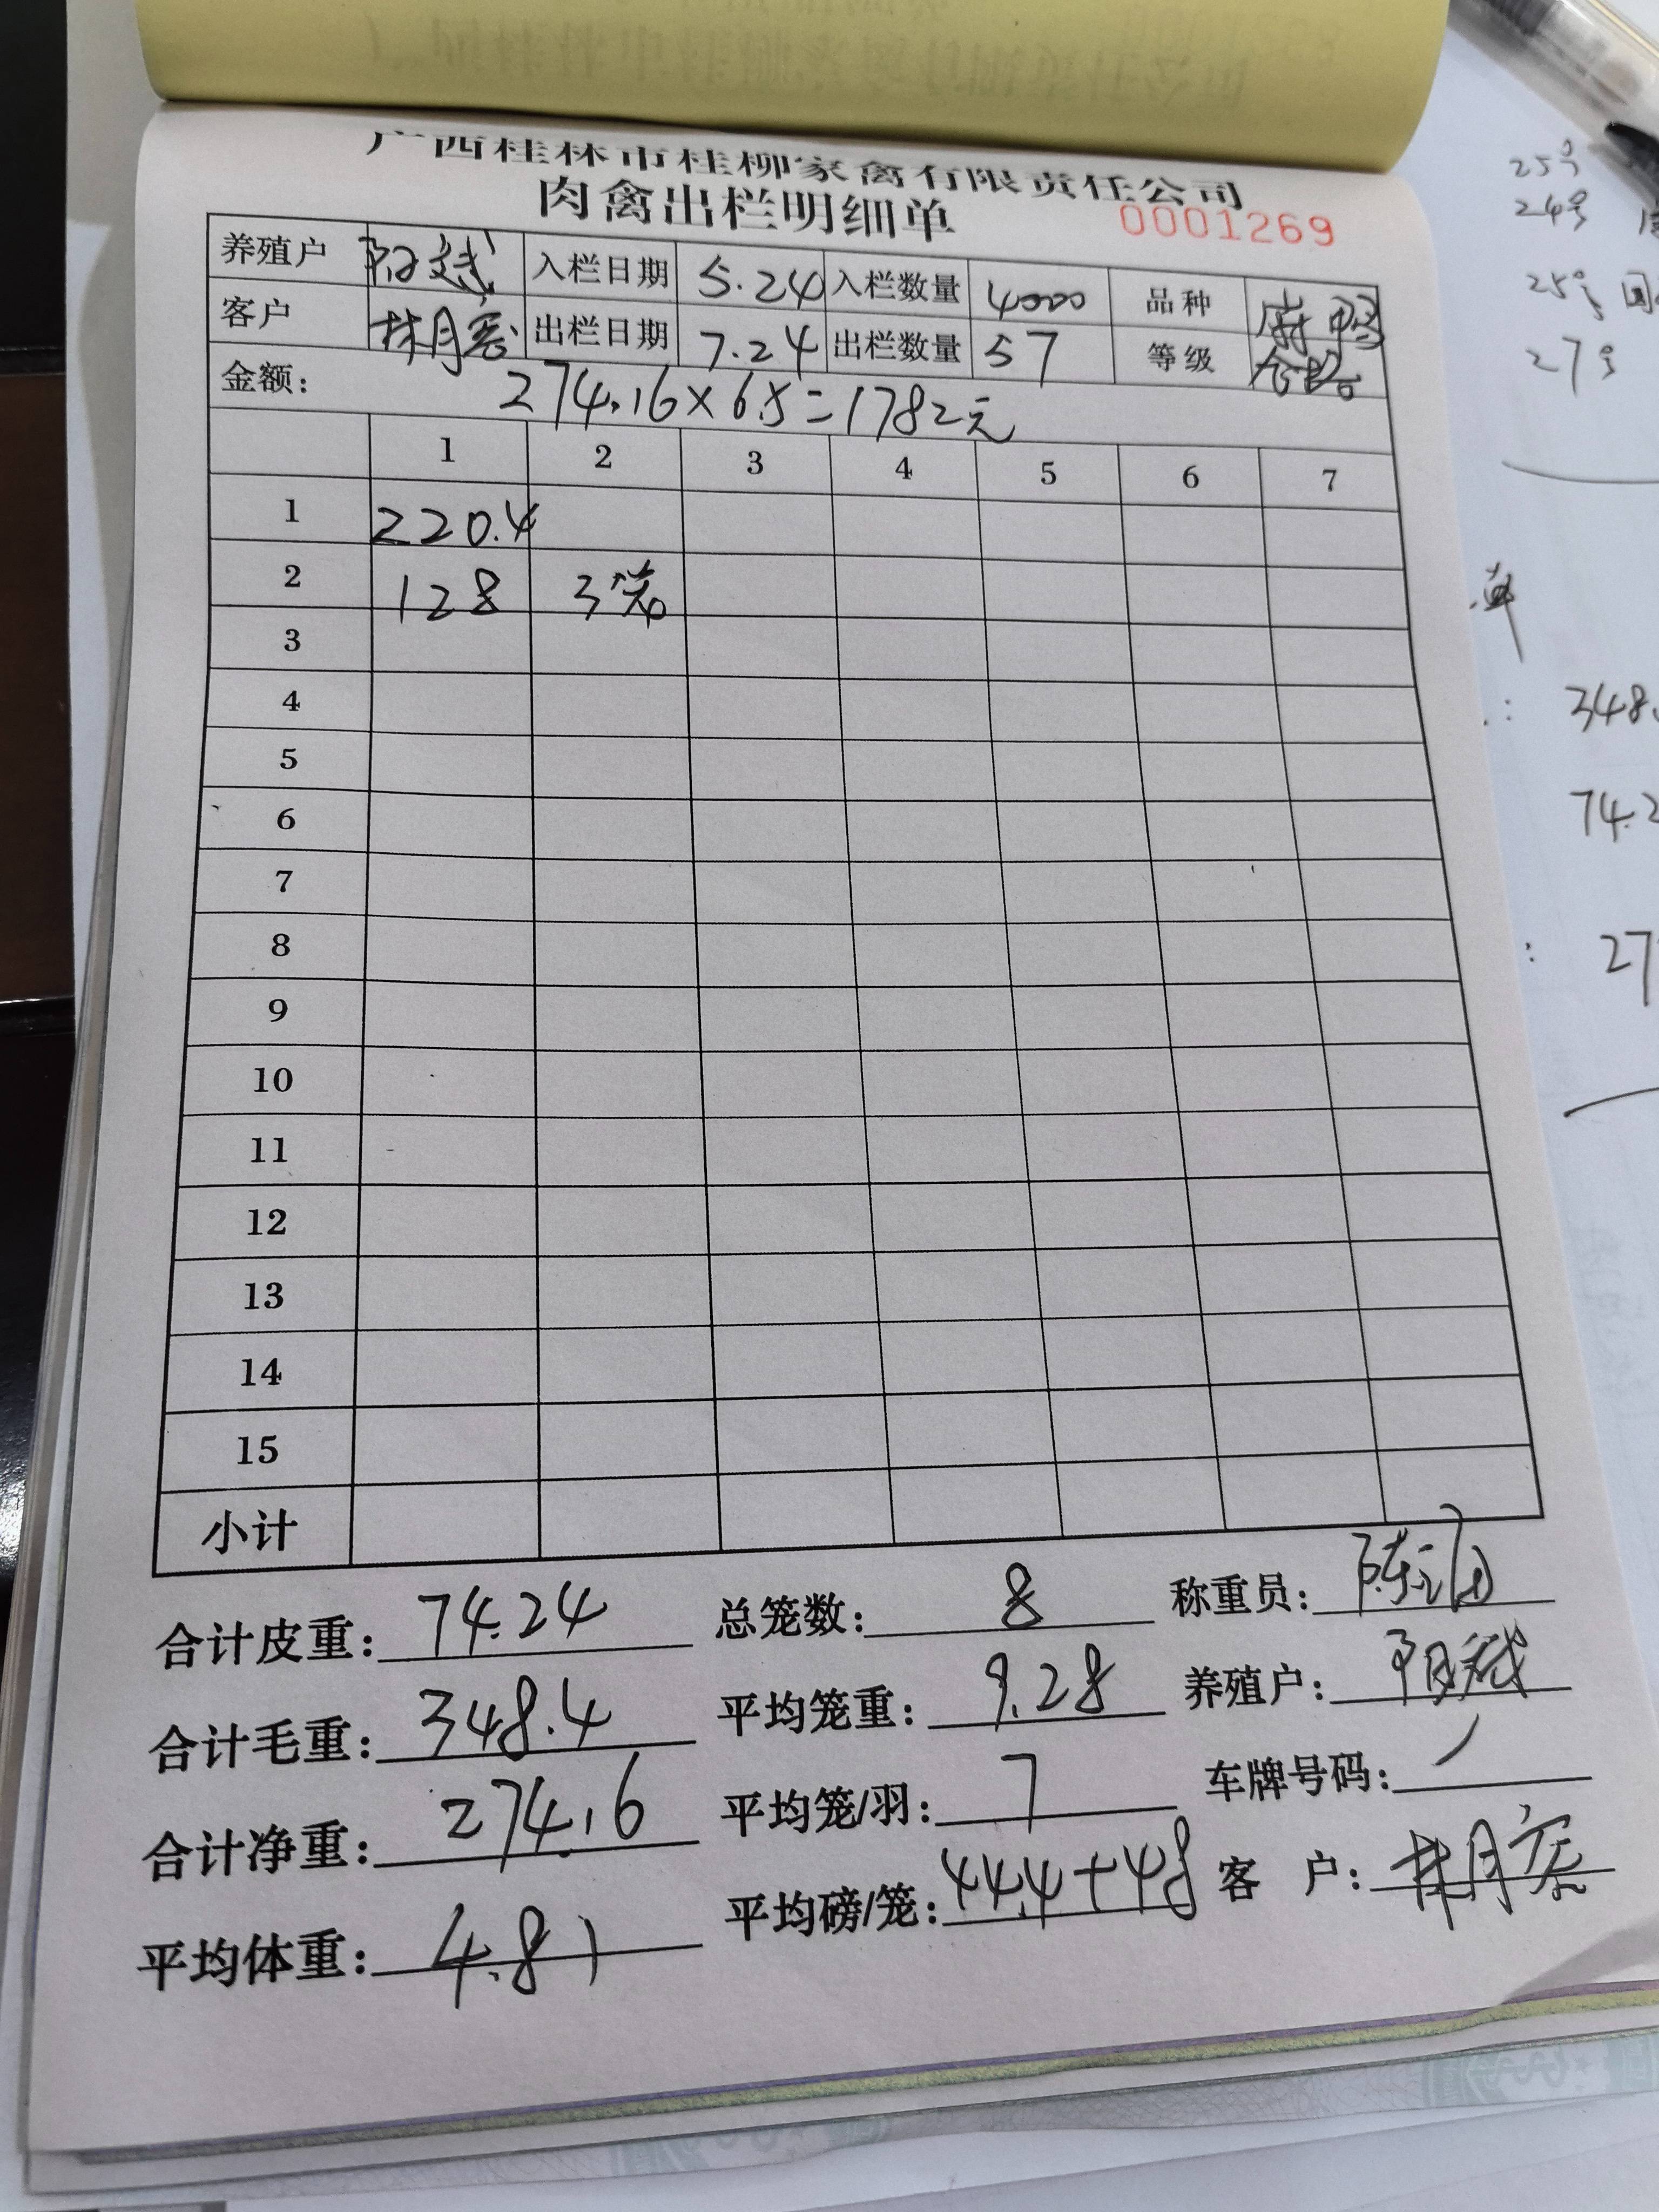 广西桂林市桂柳家禽有限责任公司
肉禽出栏明细单 0001269
养殖户 入栏日期 5.24 入栏数量 4000 品种 麻鸭
客户 林月 出栏日期 7.24 出栏数量 57 等级 合格
金额: 274.16×6.5=1782元
1 2 3 4 5 6 7
1 220.4
2 128 3笼
3
4
5
6
7
8
9
10
11
12
13
14
15
小计
合计皮重: 74.24 总笼数: 8 称重员: 陈
合计毛重: 348.4 平均笼重: 9.28 养殖户:
合计净重: 274.16 平均笼/羽: 7 车牌号码: /
平均体重: 4.81 平均磅/笼: 44.4+48 客 户: 林月
25号
24号
25号
27号
单
: 348.
74.2
: 27